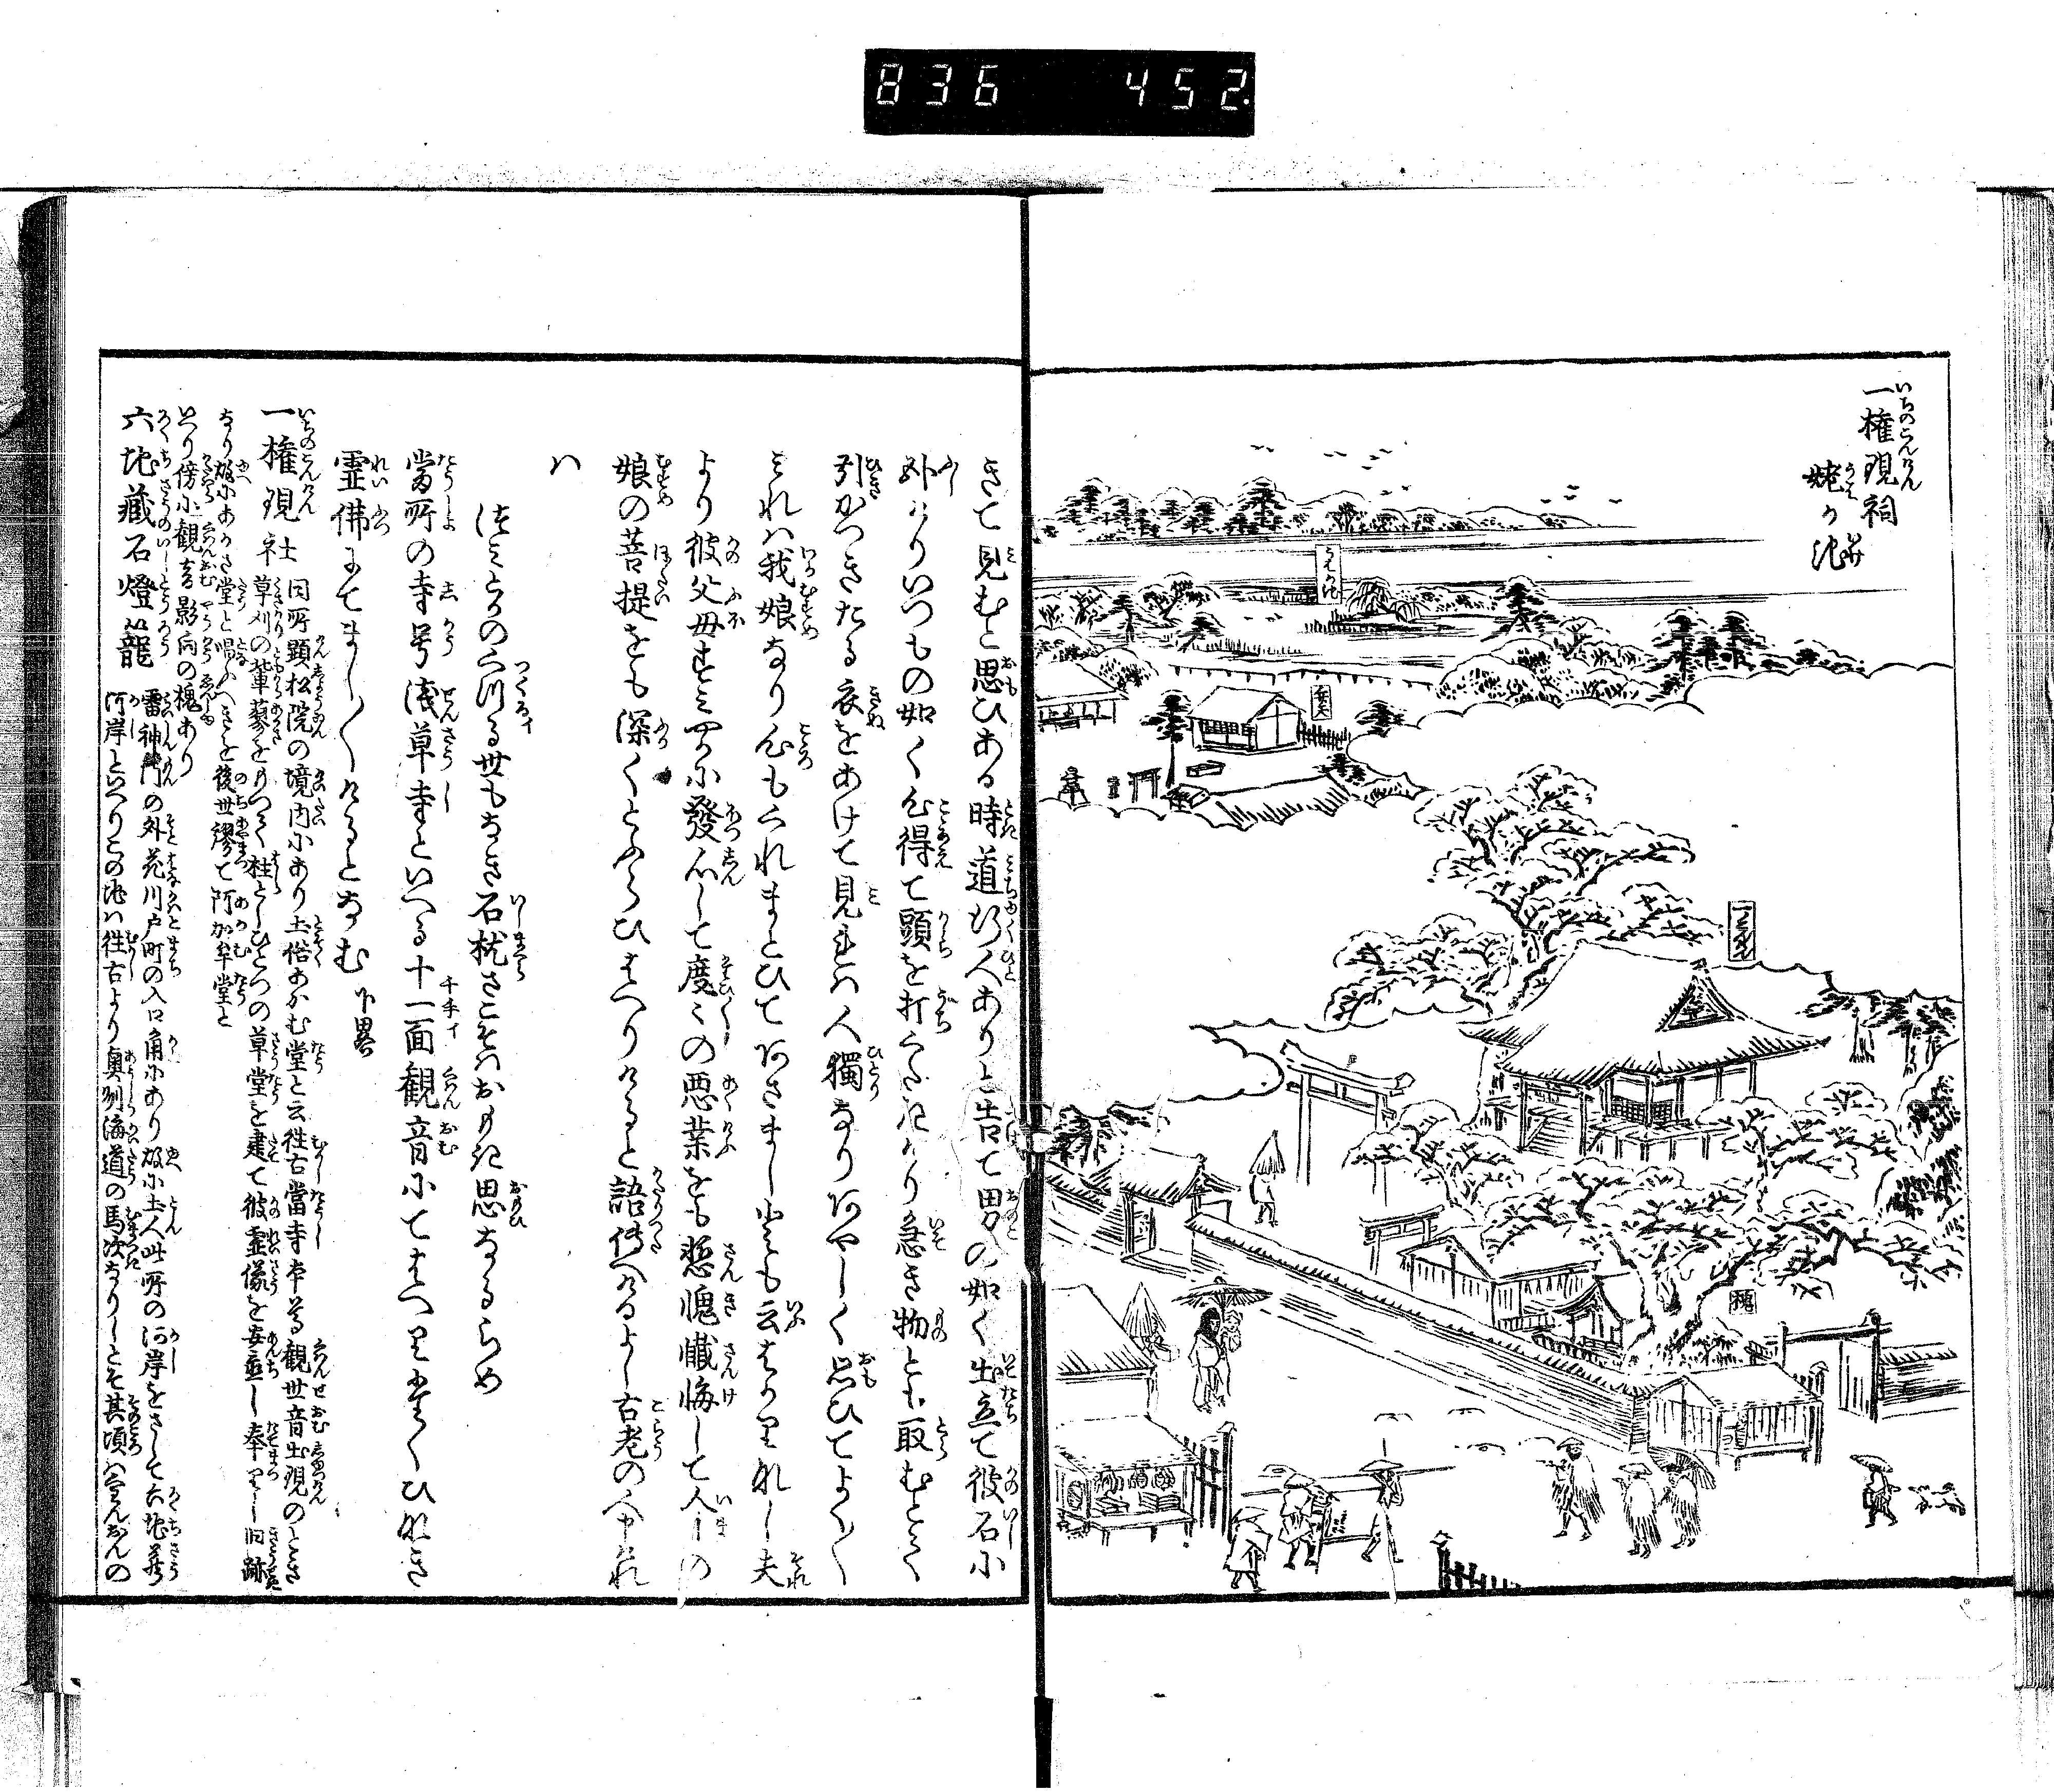 836 452
一権現祠
姥か池
うばか池
弁天
一のごんげん
槐
きて見むと思ひある時道行人ありと告て男の如く出立て彼石に
ふしけりいつもの如く心得て頭を打くたきけり急き物とも取むとて
引かつきたる衣をあけて見れは人獨なりあやしく思ひてよく〳〵
みれは我娘なり心もくれまとひてあさましとも云はかりなし夫
より彼父母
發心して度々の悪業をも慙愧懺悔して
娘の菩提をも深くとふらひはへりけると語傳へけるよし古老の人申けれ
は
つみとかの
世もなき石枕さこそはおもき思なるらめ
當所の寺号淺草寺といへる十一面観音にて
霊佛にてまし〳〵けるとなむ 下畧
一権現社 同所顕松院の境内にあり土俗あかむ堂と云往古當寺本尊観世音出現のとき
草刈の輩藜をもつて柱としひとつの草堂を建て彼霊像を安置し奉りし旧跡
なり故にあかさ堂と唱ふへきを後世謬て阿加牟堂と
いへり傍に観音影向の槐あり
六地藏石燈籠 雷神門の外花川戸町の入口角にあり故に土人此所の河岸をさして六地蔵
河岸といへりこの地は往古より奥州海道の馬次なりしとそ其頃は